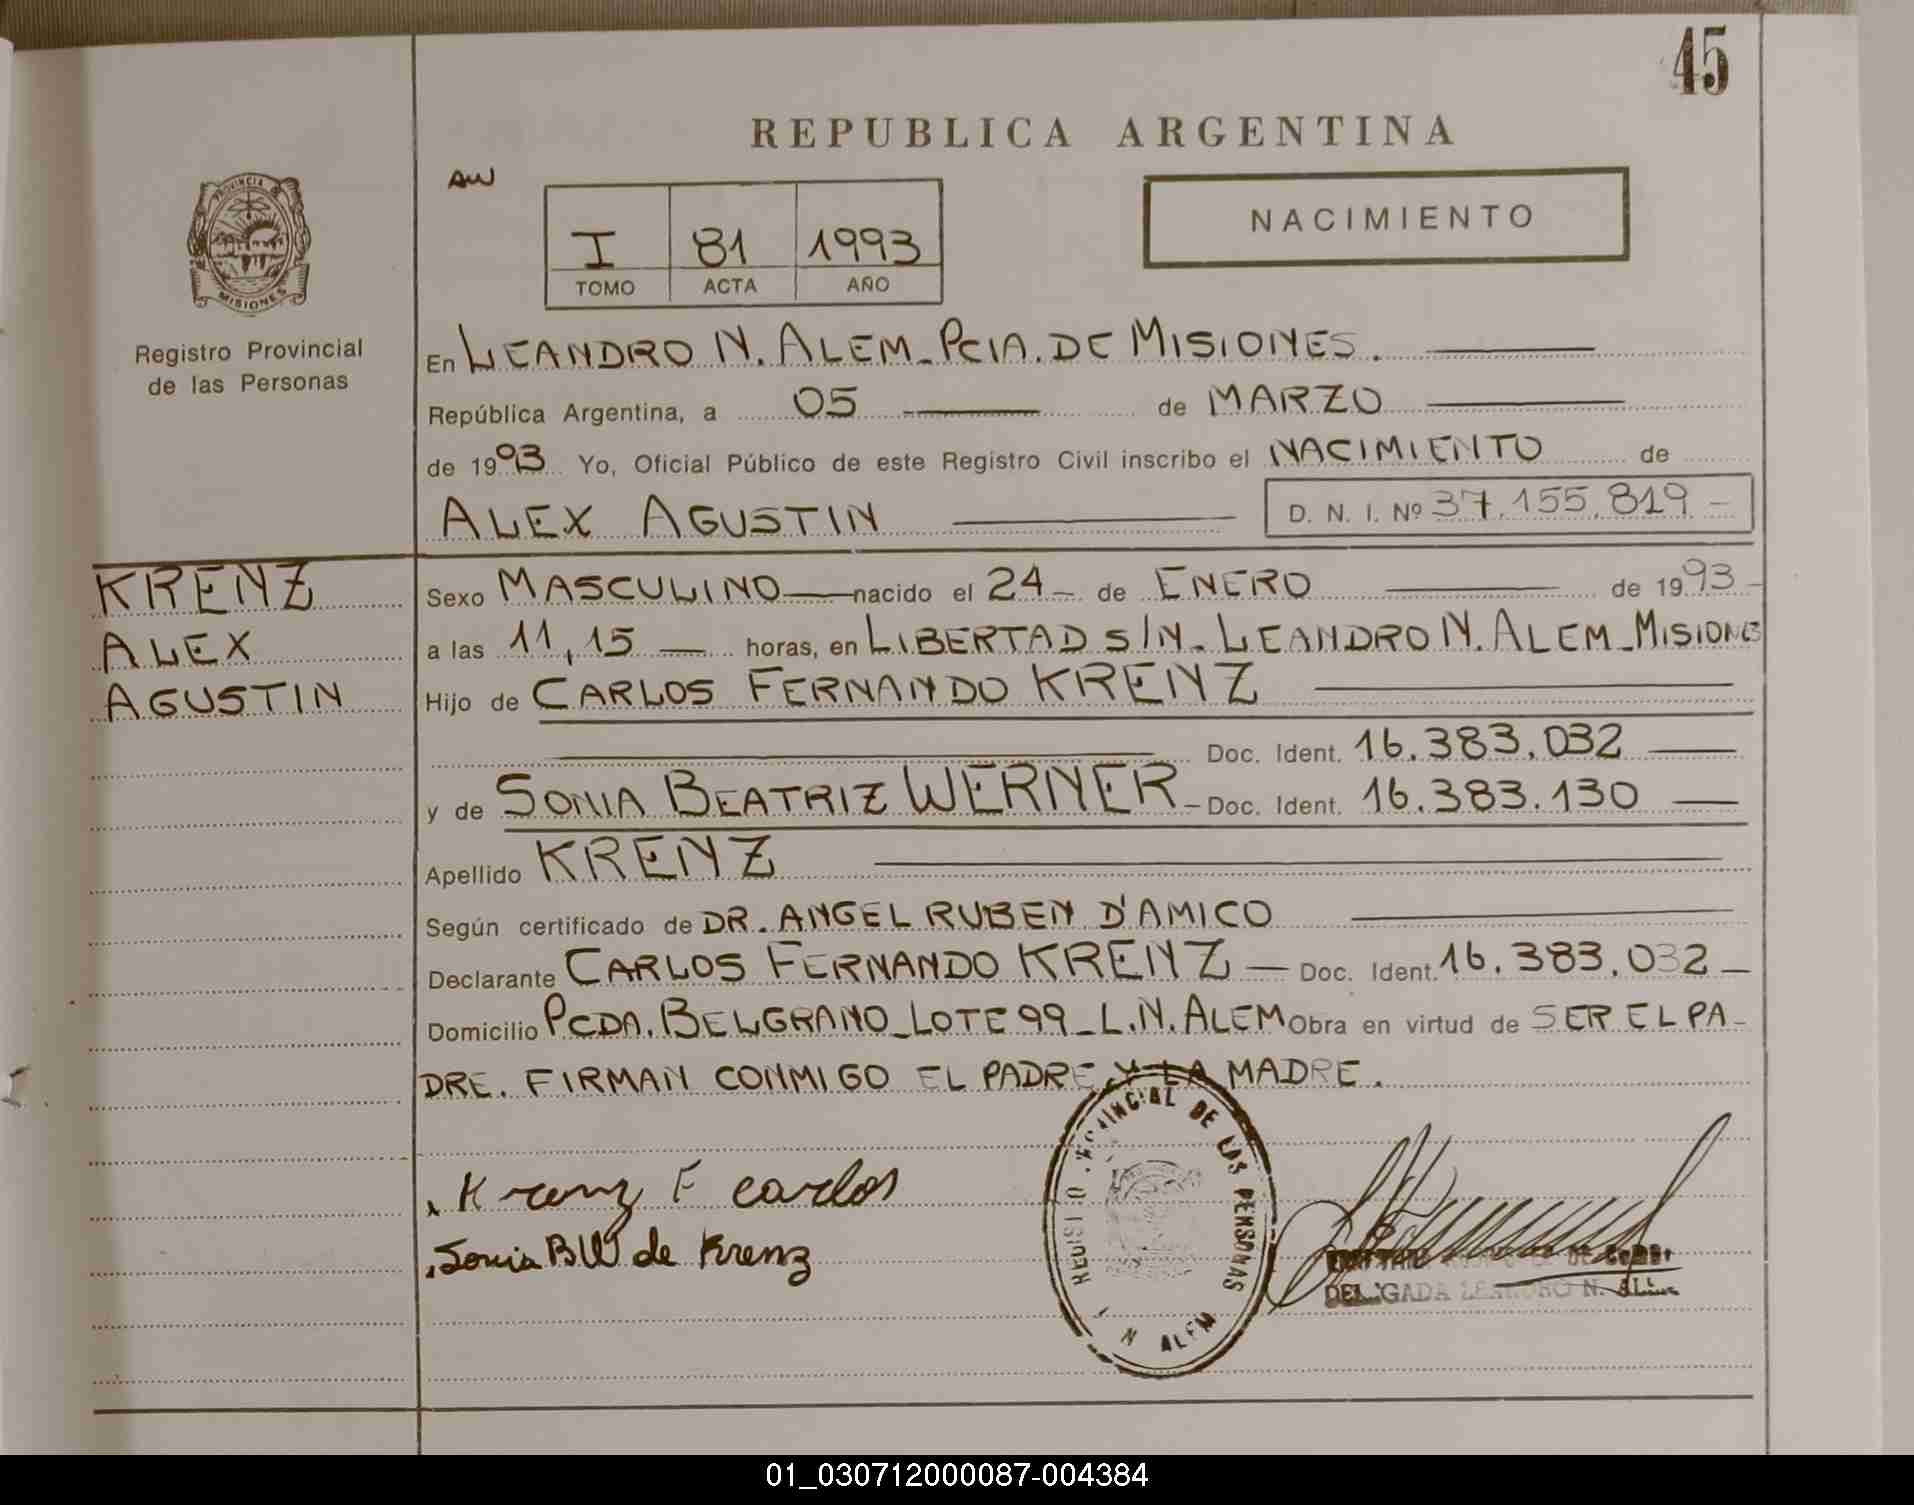 45
REPUBLICA ARGENTINA
AW
PROVINCIA DE
MISIONES
I 81 1993
TOMO ACTA AÑO
NACIMIENTO
Registro Provincial
de las Personas
En LEANDRO N. ALEM_PCIA. DE MISIONES.
República Argentina, a 05 de MARZO
de 1993 Yo, Oficial Público de este Registro Civil inscribo el NACIMIENTO de
ALEX AGUSTIN D. N. I. Nº 37.155.819 -
KRENZ
ALEX
AGUSTIN
Sexo MASCULINO nacido el 24 - de ENERO de 1993 -
a las 11,15 horas, en LIBERTAD S/N. LEANDRO N. ALEM_MISIONES
Hijo de CARLOS FERNANDO KRENZ
Doc. Ident. 16.383.032
y de SONIA BEATRIZ WERNER - Doc. Ident. 16.383.130
Apellido KRENZ
Según certificado de DR. ANGEL RUBEN D'AMICO
Declarante CARLOS FERNANDO KRENZ - Doc. Ident. 16.383.032 -
Domicilio PCDA. BELGRANO_LOTE 99_L.N. ALEM Obra en virtud de SER EL PA-
DRE. FIRMAN CONMIGO EL PADRE Y LA MADRE.
Krenz F carlos
Sonia BW de Krenz
REGISTRO PROVINCIAL DE LAS PERSONAS
N ALEM
DELEGADA LEANDRO N. ALEM
01_030712000087-004384